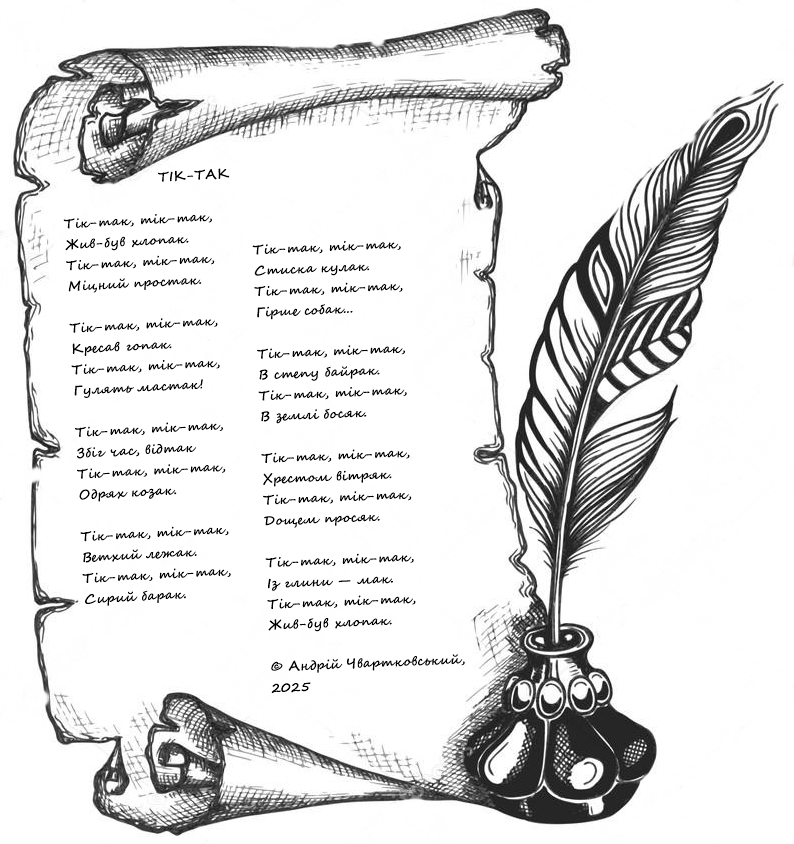 ТІК-ТАК
Тік-так, тік-так,
Жив-був хлопак.
Тік-так, тік-так,
Міцний простак.
Тік-так, тік-так,
Кресав гопак.
Тік-так, тік-так,
Гулять мастак!
Тік-так, тік-так,
Збіг час, відтак
Тік-так, тік-так,
Одрях козак.
Тік-так, тік-так,
Ветхий лежак.
Тік-так, тік-так,
Сирий барак.
Тік-так, тік-так,
Стиска кулак.
Тік-так, тік-так,
Гірше собак...
Тік-так, тік-так,
В степу байрак.
Тік-так, тік-так,
В землі босяк.
Тік-так, тік-так,
Хрестом вітряк.
Тік-так, тік-так,
Дощем просяк.
Тік-так, тік-так,
Із глини — мак.
Тік-так, тік-так,
Жив-був хлопак.
© Андрій Чвартковський,
2025